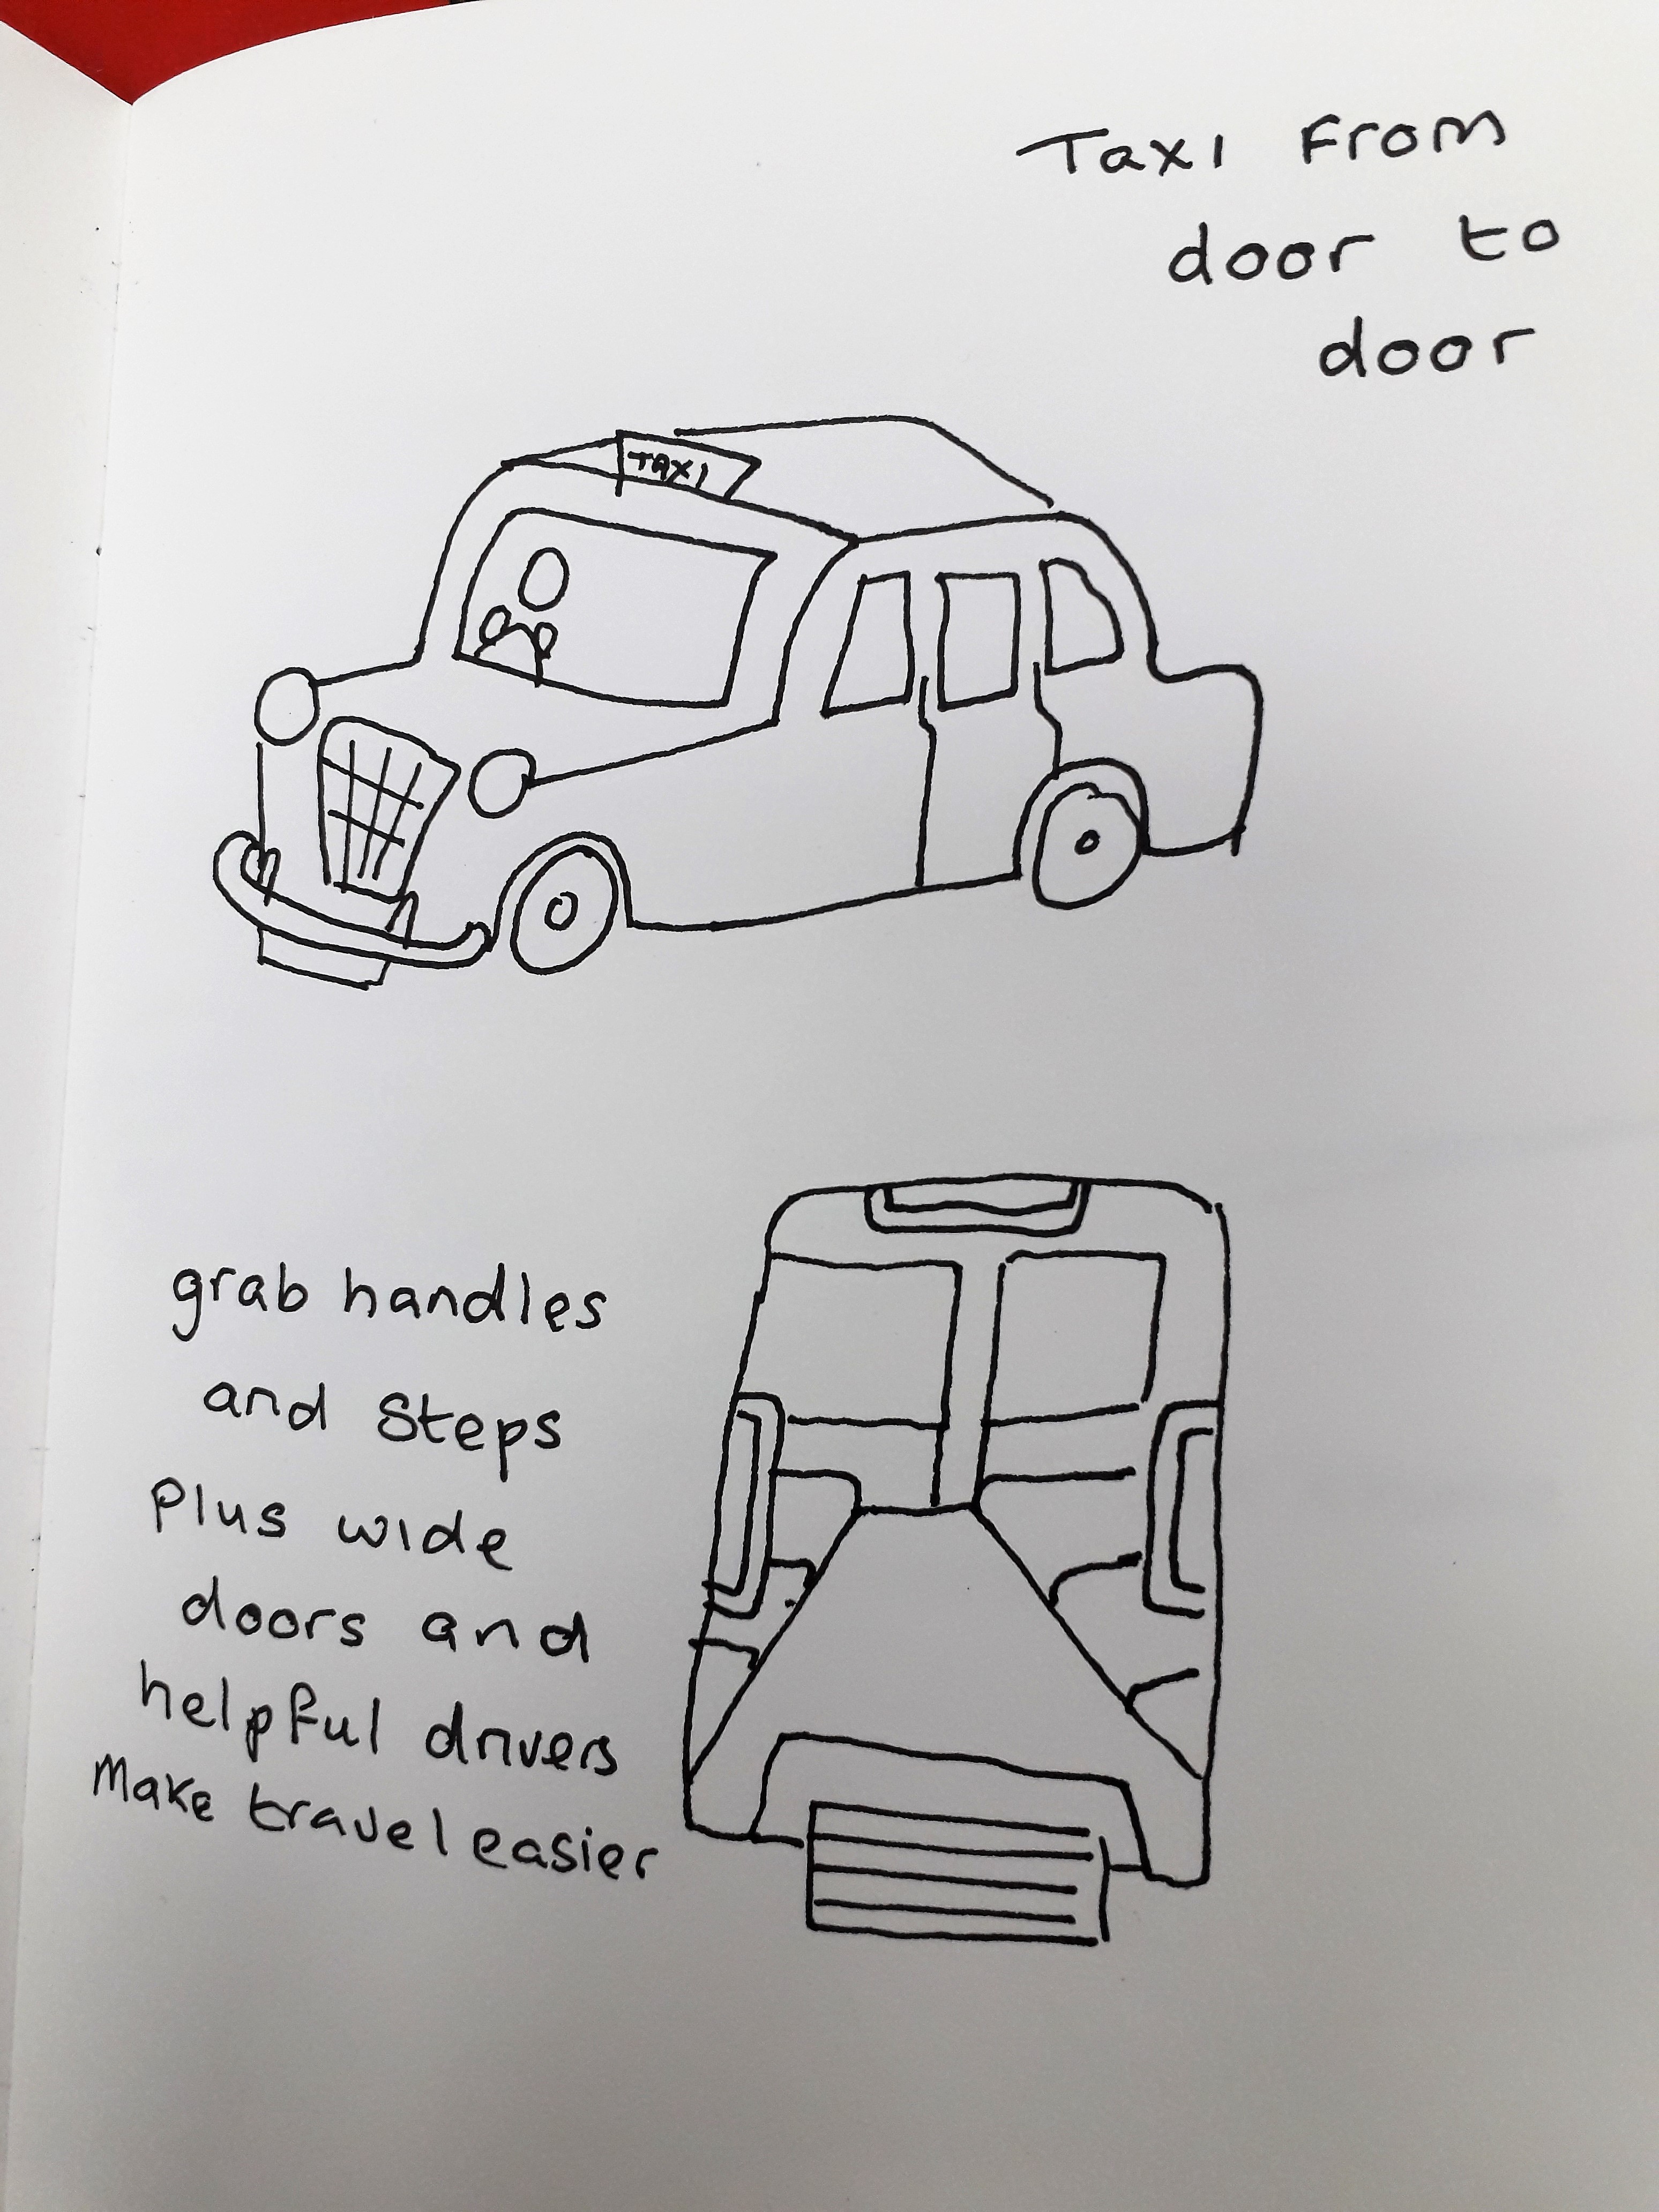 Taxi From
door to
door
TAXI
grab handles
and Steps
Plus wide
doors and
helpful drivers
Make travel easier